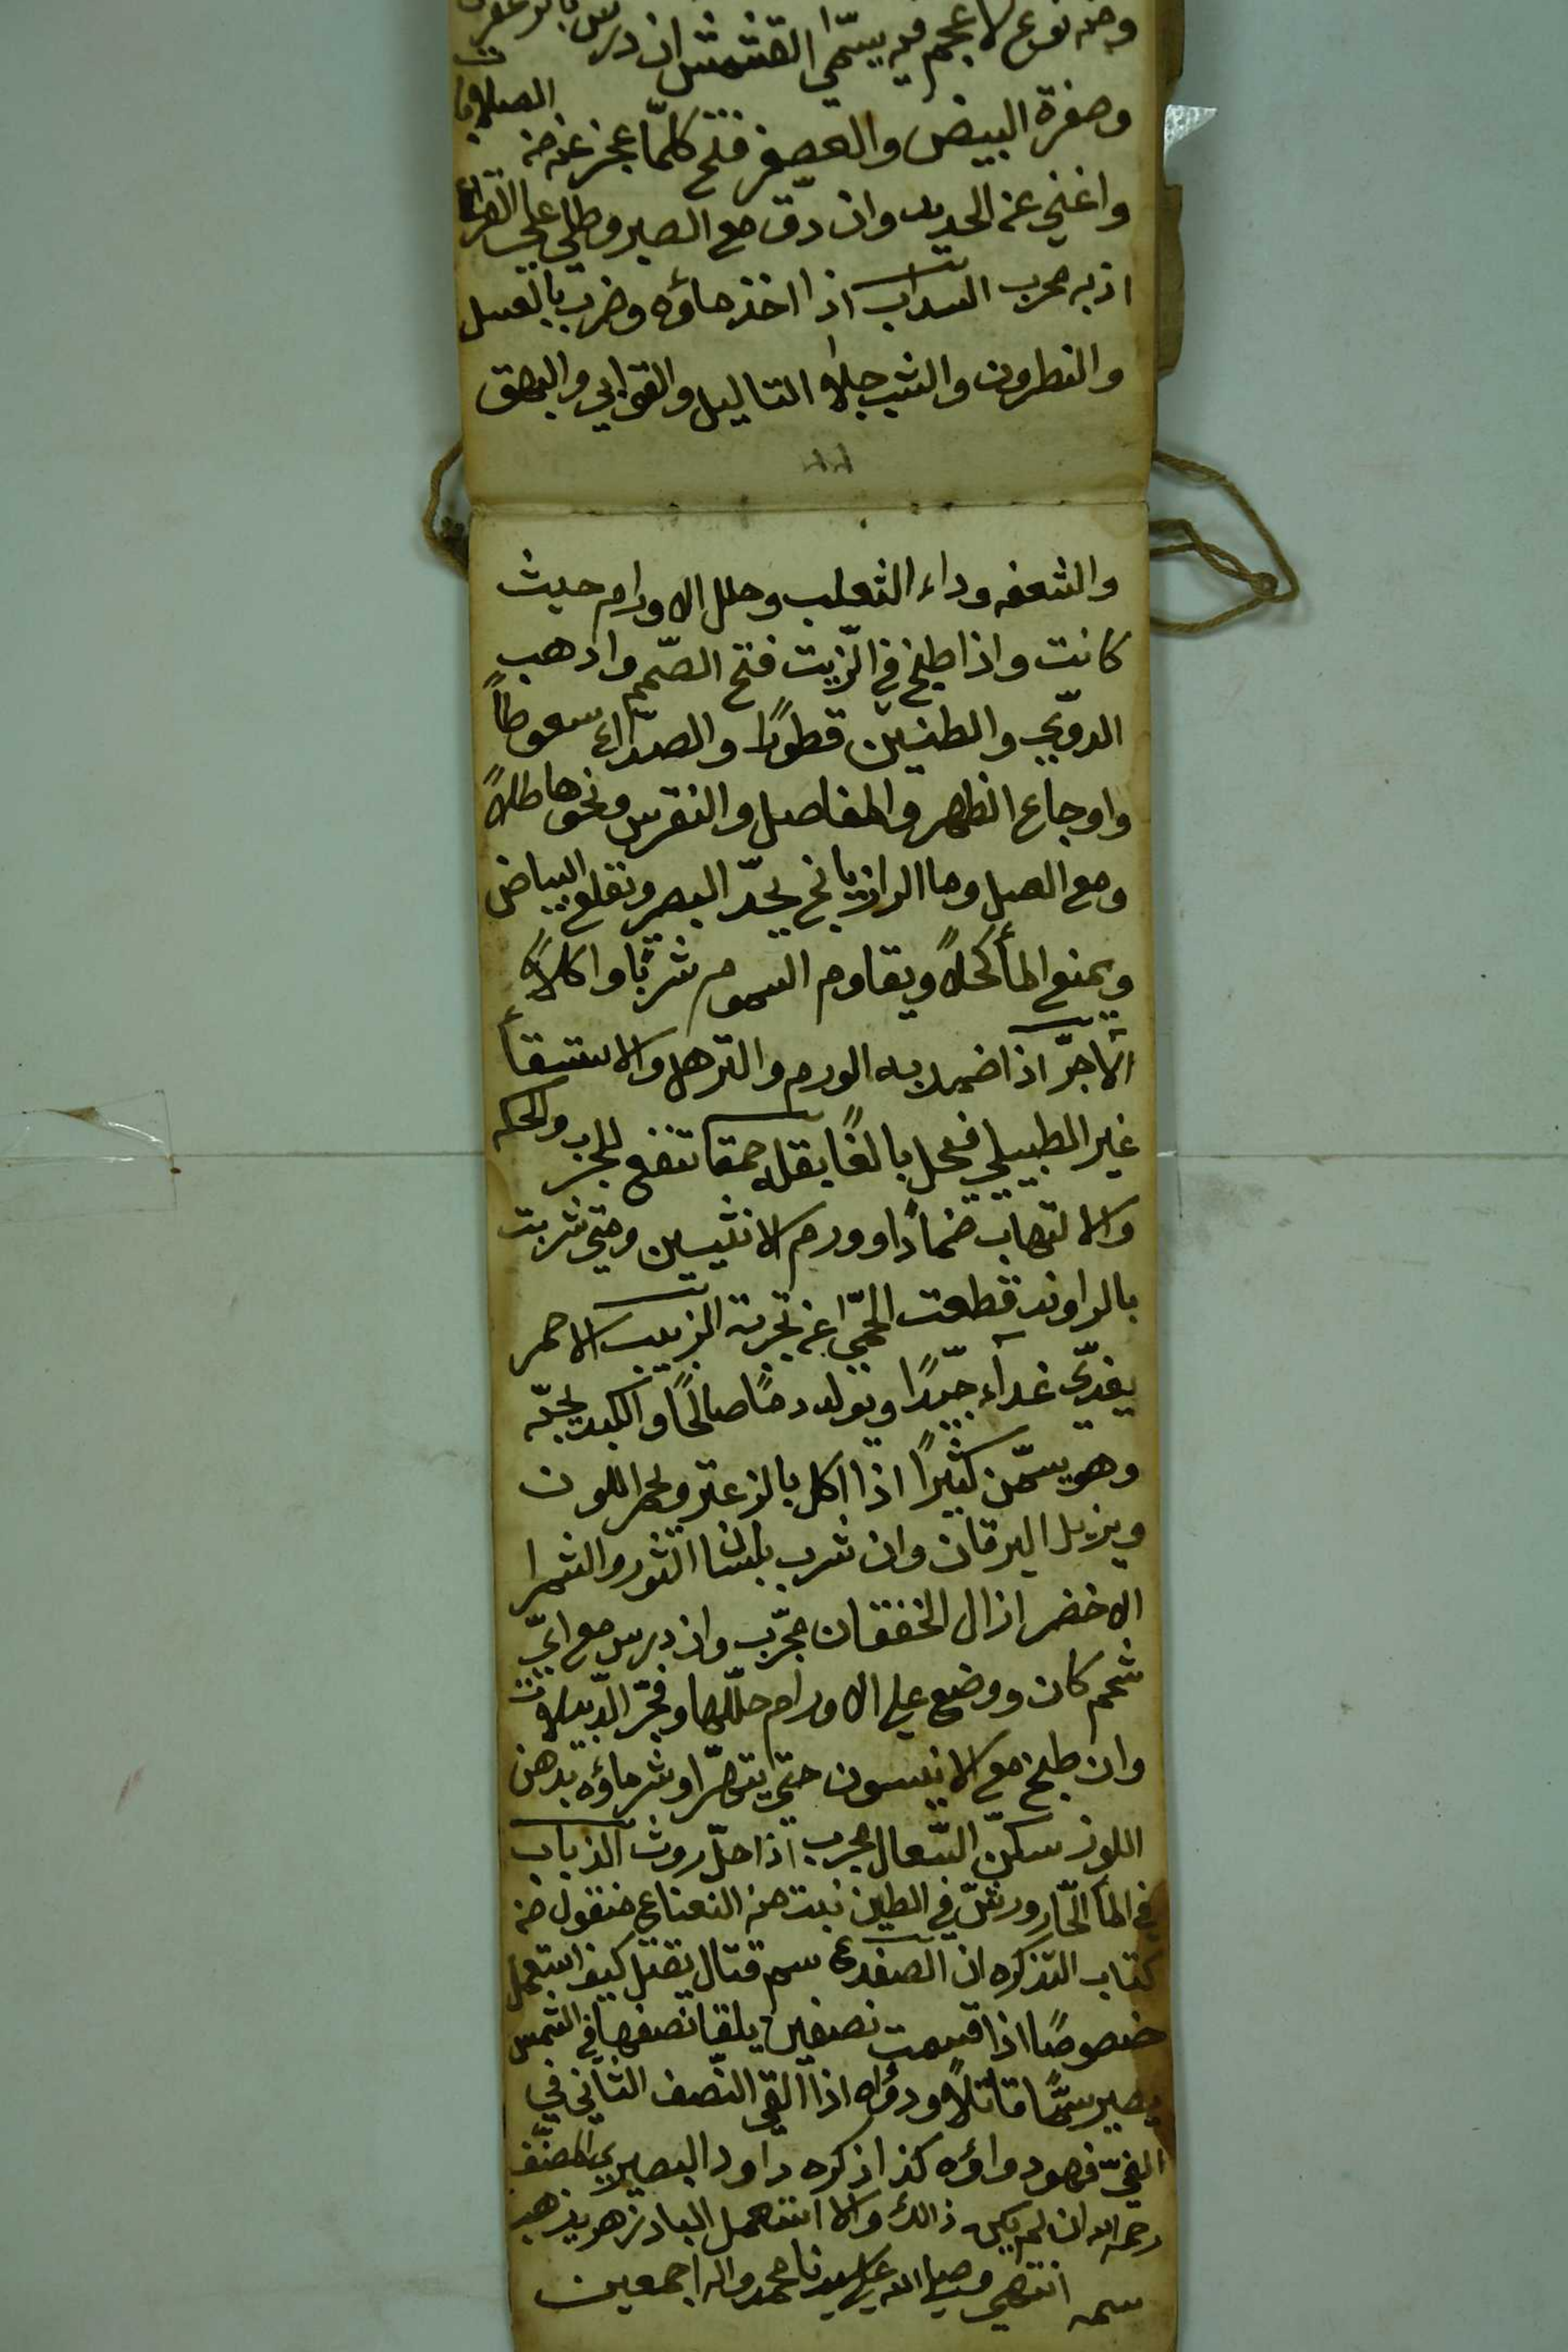 ومنه نوع لا عجم فيه يسمّى القشمش ان درس بالزعفران
وصفرة البيض والعصفر فتح كلمّا عجز عنه من الصلابات
واغني عن الحديد وان دق مع الصبر وطلي على القراع
اذبه مجرب السداب اذا اخذ ماؤه وضرب بالعسل
والنطرون والشب جلا الثاليل والقوابي والبهق
والشعفه وداء الثعلب وحلل الاورام حيث
كانت واذا طبخ في الزّيت فتح الصّمم واذهب
الدوّي والطنين قطورًا والصدّاع سعوطاً
واوجاع الظهر والمفاصل والنقرس ونحوها طلاً
ومع العسل وما الرازيانج يحدّ البصر ويقلع البياض
ويمنع المأ كحلاً ويقاوم السموم شربًا واكلاً
الاجرّ اذا ضمد به الورم والترهل والاستسقأ
غير الطبيلي فعل بالغًا بقله حمقا تنفع للجرب والحكه
والالتهاب ضمادًا وورم الانثيين ومتى شربت
بالراوند قطعت الحمّى عن تجربة الزبيب الاحمر
يغذّي غدآء جيّدًا ويولد دمًا صالحًا والكبد يحبّه
وهو يسمّن كثيرًا اذا اكل بالزعتر ويحمر اللون
ويزيل اليرقان وان شرب بلسان الثور والشمرا
الاخضر ازال الخفقان مجرّب وان درس مع ايّ
شحم كان ووضع على الاورام حلّلها وفجّر الدّبيلات
وان طبخ مع الانيسون حتى يتهرّا وشر ماؤه بدهن
اللوز سكنّ السّعال مجرب اذا حلّ روث الذباب
في المأ الحّار ورشّ في الطين نبت منه النعناع منقول من
كتاب التذكره ان الضفدع سم قتال يقتل كيف استعمل
خصوصًا اذا قسمت نصفين يلقا نصفها في الشمس
يصير سمًّا قاتلاً ودواه اذا القي النّصف الثاني في
الفيّ فهو دواؤه كذا ذكره داود البصير المصنّف
رحمه الله ان لم يكن ذالك والا استعمل البادزهر يذهب
سمه انتهى وصلى الله على سيدنا محمد واله اجمعين